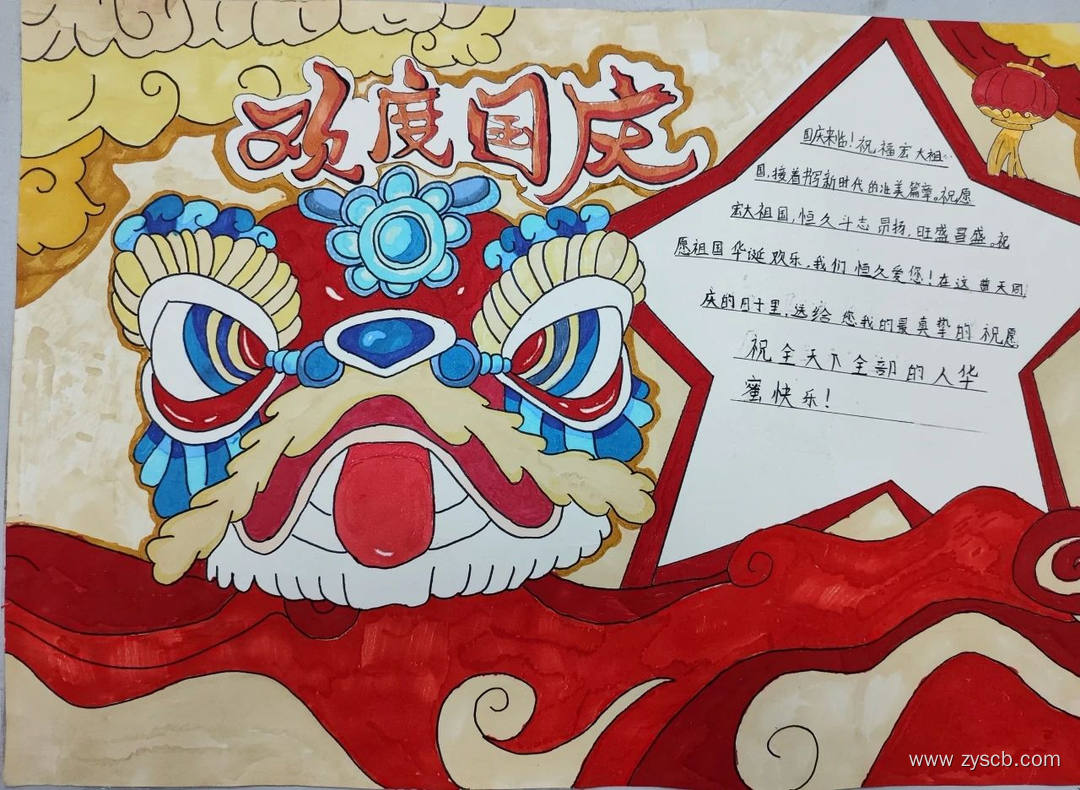 欢度国庆
国庆来临！祝福宏大祖
国，接着书写新时代的准美篇章。祝愿
宏大祖国，恒久斗志昂扬，旺盛昌盛。祝
愿祖国华诞欢乐，我们恒久爱您！在这普天同
庆的日子里，送给您我的最真挚的祝愿
祝全天下全部的人华
蜜快乐！
www.zyscb.com